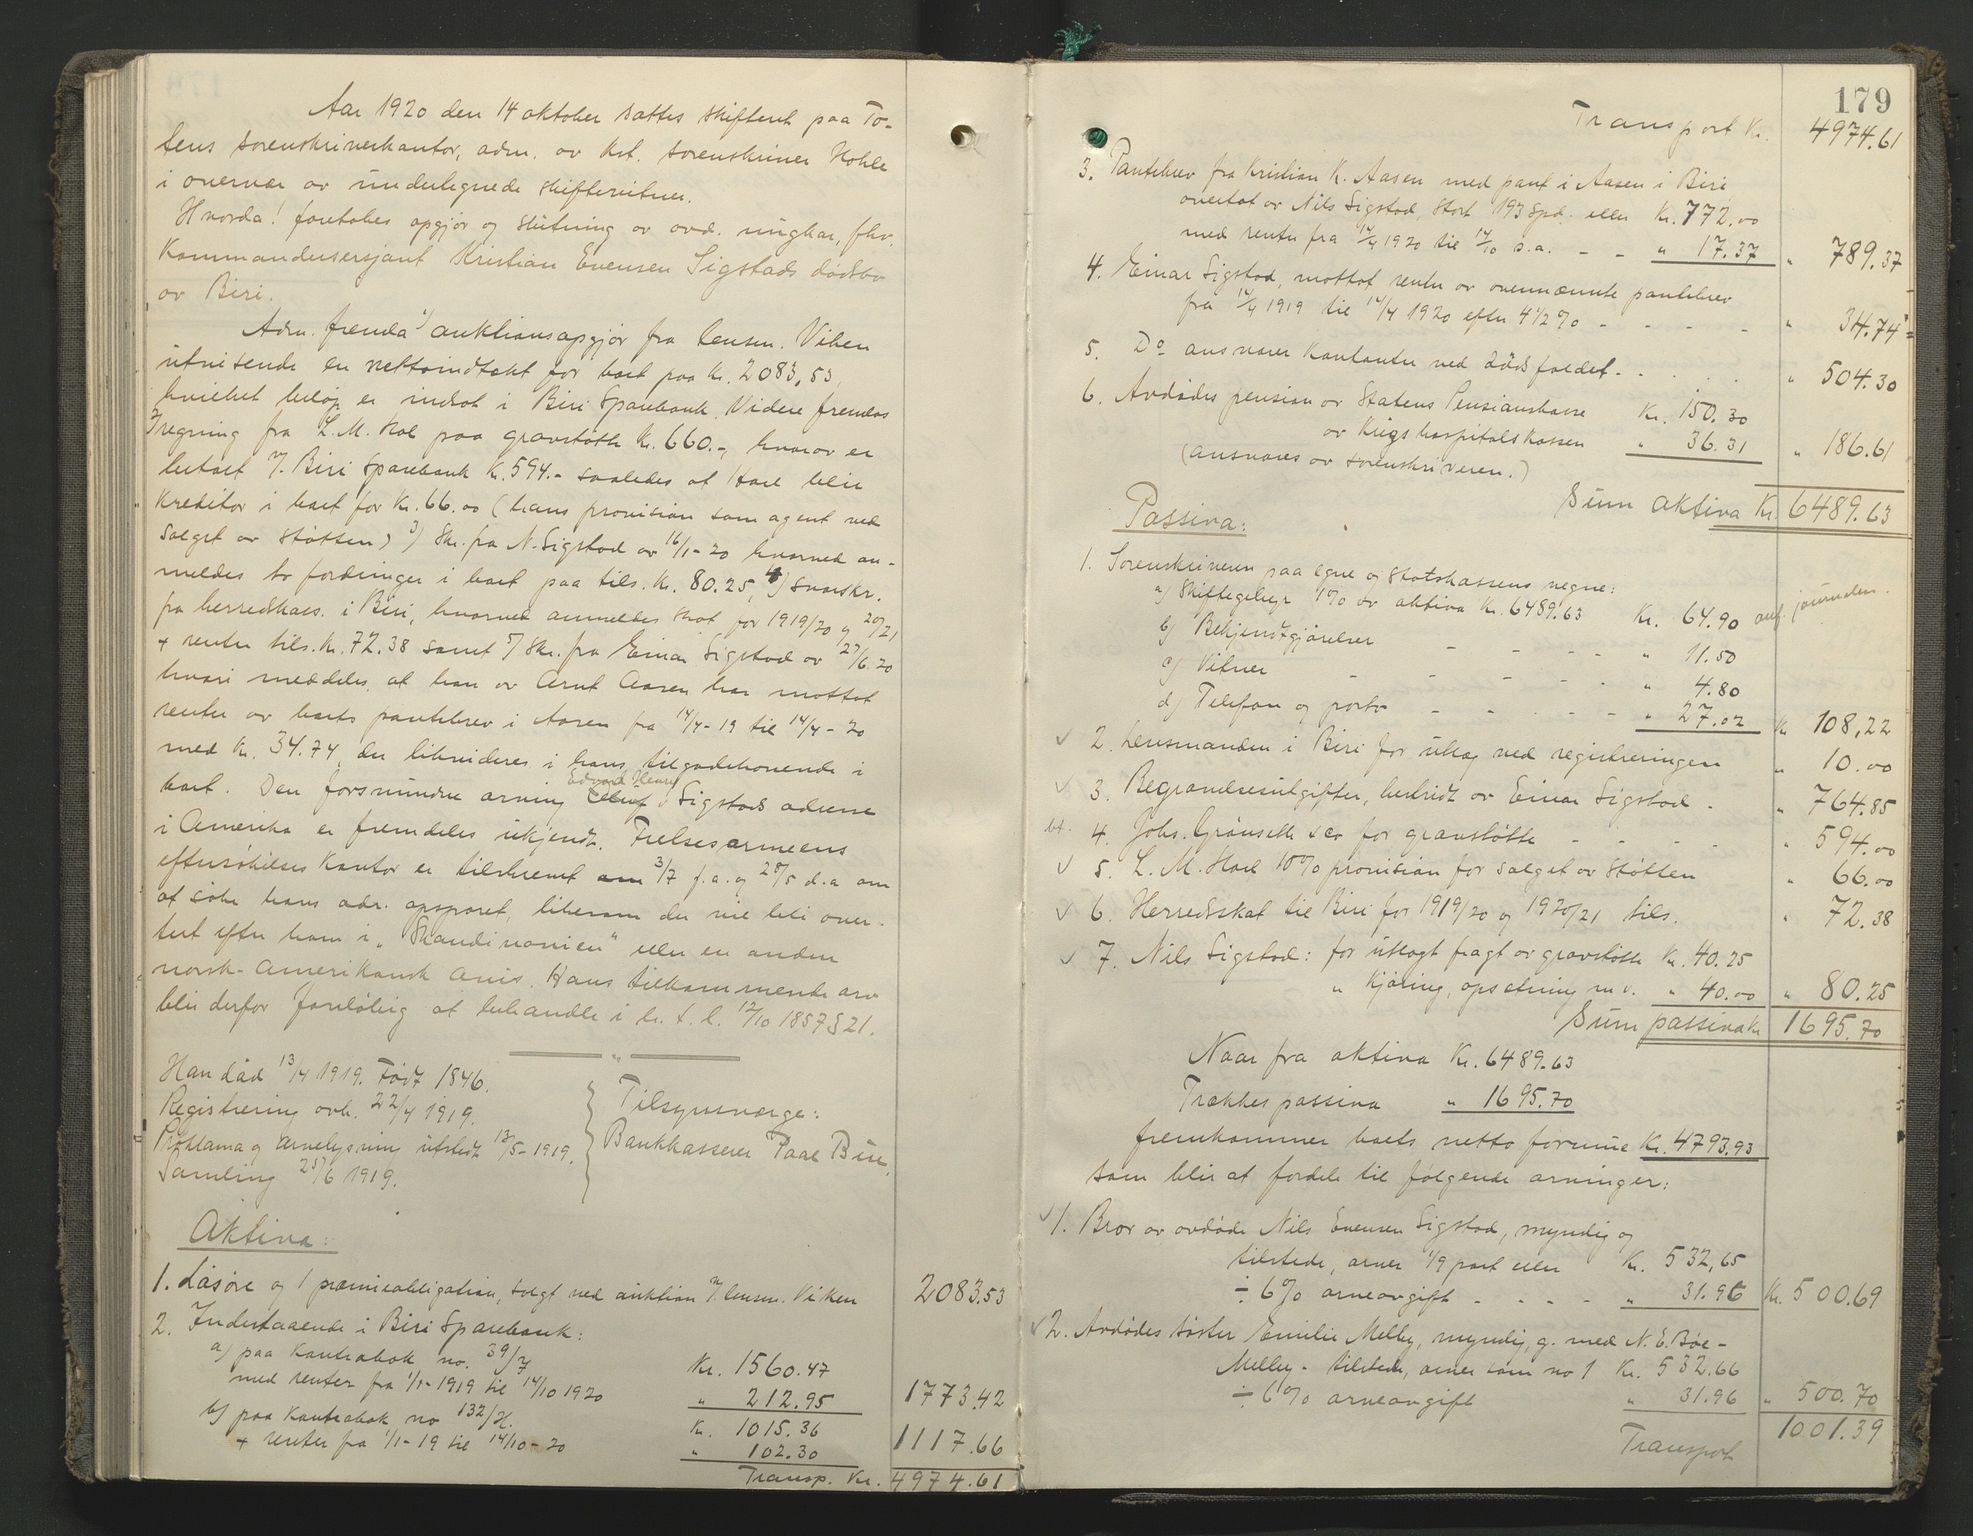 Aar 1920 den 14 oktober sattes skifteret paa To-
tens sorenskriverkontor, adm. av kst. sorenskriver Hohle
i overvær av undertegnede skiftevitner.
Hvorda! foretokes opgjør og slutning av avd. ungkar, fhv.
Kommandersersjant Kristian Evensen Sigstads dødsbo
av Biri.
Adm. fremla 1) auktionsopgjør fra lensm. Viken
utvisende en nettoindtækt for boet paa Kr. 2083,53,
hvilket beløp er indsat i Biri Sparebank. Videre fremlas
2) regning fra L. M. Hoel paa gravstøtte Kr. 660.-, hvorav er
betalt t/ Biri Sparebank Kr. 594.- saaledes at Hoel blir
Kreditor i boet for Kr. 66.00 (hans provision som agent ved
salget av støtten) 3) Skr. fra N. Sigstad av 16/1-20 hvorved an-
meldes to fordringer i boet paa tils. Kr. 80.25, 4) svarskr.
fra herredskass. i Biri, hvorved anmeldes skat for 1919/20 og 20/21
+ renter tils. Kr. 72.38 samt 5) Skr. fra Einar Sigstad av 27/6.20
hvori meddeles, at han av Arnt Aasen har mottat
renter av boets pantebrev i Aasen fra 14/4-19 til 14/4-20
med Kr. 34.74, der likvideres i hans tilgodehavende i
Edvard Henry
boet. Den forsvundne arving Sigstads adresse
i Amerika er fremdeles ukjendt. Frelsesarmeens
eftersøkelses kontor er tilskrevet 3/7 f.a. og 28/5 d.a. om
at søke hans adr. opsporet, likesom der vil bli aver-
tert efter ham i "Skandinavien" eller en anden
norsk-amerikansk avis. Hans tilkommende arv
blir derfor foreløbig at behandle i h. t. l. 12/10 1857 § 21.
Han død 13/4 1919. Født 1846.
Registrering avh. 22/4 1919.
Proklama og arvelysning utstedt 13/5-1919.
Samling 25/6 1919.
Tilsynsværge:
Bankkasserer Paal Biri.
Aktiva:
1. Løsøre og 1 præmieobligation, solgt ved auktion v/ lensm. Viken 2083.53
2. Indestaaende i Biri Sparebank:
a) paa Kontrabok no. 39/7 Kr. 1560.47
med renter fra 1/1-1919 til 14/10 1920 " 212.95 1773.42
b) paa Kontrabok no 132/H. Kr. 1015.36
+ renter fra 1/1-19 til 14/10-20 " 102.30 1117.66
Transp. Kr. 4974.61
179
Transport Kr. 4974.61
3. Pantebrev fra Kristian K. Aasen med pant i Aasen i Biri
overtat av Nils Sigstad, stort 193 Spd. eller Kr. 772.00
med renter fra 14/4 1920 til 14/10 s.a. - - " 17.37 " 789.37
4. Einar Sigstad, mottat renter av ovennævnte pantebrev
fra 14/4 1919 til 14/4 1920 efter 4 1/2 % - - - - " 34.74
5. Do ansvarer Kontanter ved dødsfaldet - . . . . " 504.30
6. Avdødes pension av Statens Pensionskasse Kr. 150.30
av Krigshospitalskassen " 36.31 " 186.61
(ansvares av sorenskriveren.)
Sum aktiva Kr. 6489.63
Passiva:
1. Sorenskriveren paa egne og Statskassens vegne:
a) Skiftegebyr 1% av aktiva Kr. 6489.63 Kr. 64.90 anf. journalen.
b) Bekjendtgjørelser - - - - " 11.50
c) Vitner - - - - - " 4.80
d) Telefon og porto - - - - - " 27.02 Kr 108,22
✓ 2. Lensmanden i Biri for utlæg ved registreringen " 10.00
✓ 3. Begravelsesutgifter, bestridt av Einar Sigstad - " 764.85
bt. 4. Johs. Grönseth & co for gravstøtte - - - - " 594.00
✓ 5. L. M. Hoel 10% provision for salget av støtten " 66.00
✓ 6. Herredsskat til Biri for 1919/20 og 1920/21 tils. " 72.38
✓ 7. Nils Sigstad: for utlagt fragt av gravstøtte Kr. 40.25
" Kjøring, opsetning m.v. " 40.00 " 80.25
Sum passiva Kr 1695.70
Naar fra aktiva Kr. 6489.63
Trækkes passiva " 1695.70
fremkommer boets netto formue Kr. 4793.93
som blir at fordele til følgende arvinger:
✓ 1. Bror av avdøde Nils Evensen Sigstad, myndig og
tilstede, arver 1/9 part eller Kr. 532,65
÷ 6% arveavgift - - - - " 31.96 Kr. 500.69
✓ 2. Avdødes søster Emilie Melby, myndig, g. med N. E. Bøe-
Melby - tilstede, arver som no 1 Kr. 532.66
÷ 6% arveavgift " 31.96 " 500.70
Transport 1001.39